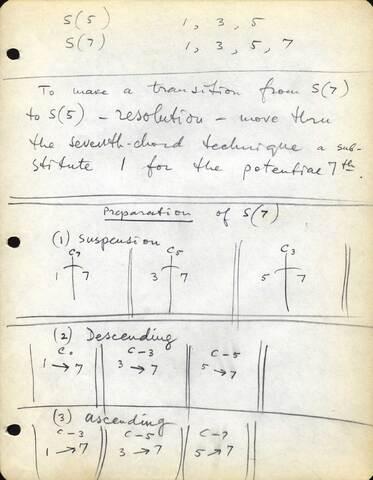 S(5) 1, 3, 5
S(7) 1, 3, 5, 7
To make a transition from S(7)
to S(5) - resolution - move thru
the seventh-chord technique a sub-
stitute 1 for the potential 7th.
Preparation of S(7)
(1) suspension
C7 C5 C3
1 7 3 7 5 7
(2) Descending
C-3 C-5
1 → 7 3 → 7 5 → 7
(3) ascending
C-3 C-5 C-7
1 → 7 3 → 7 5 → 7